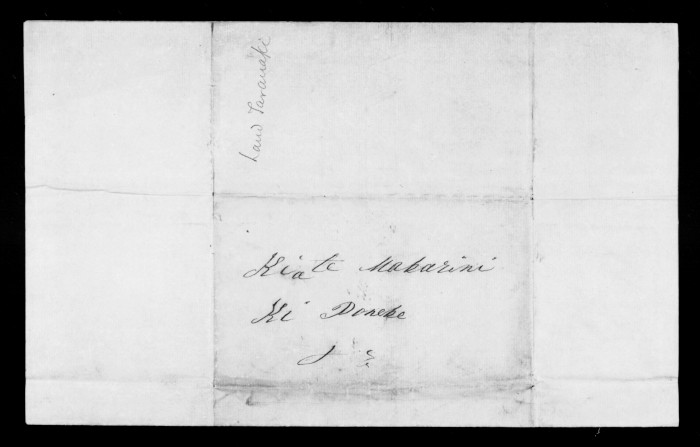 Land Taranaki
Kia te Makarini
Ki Poneke